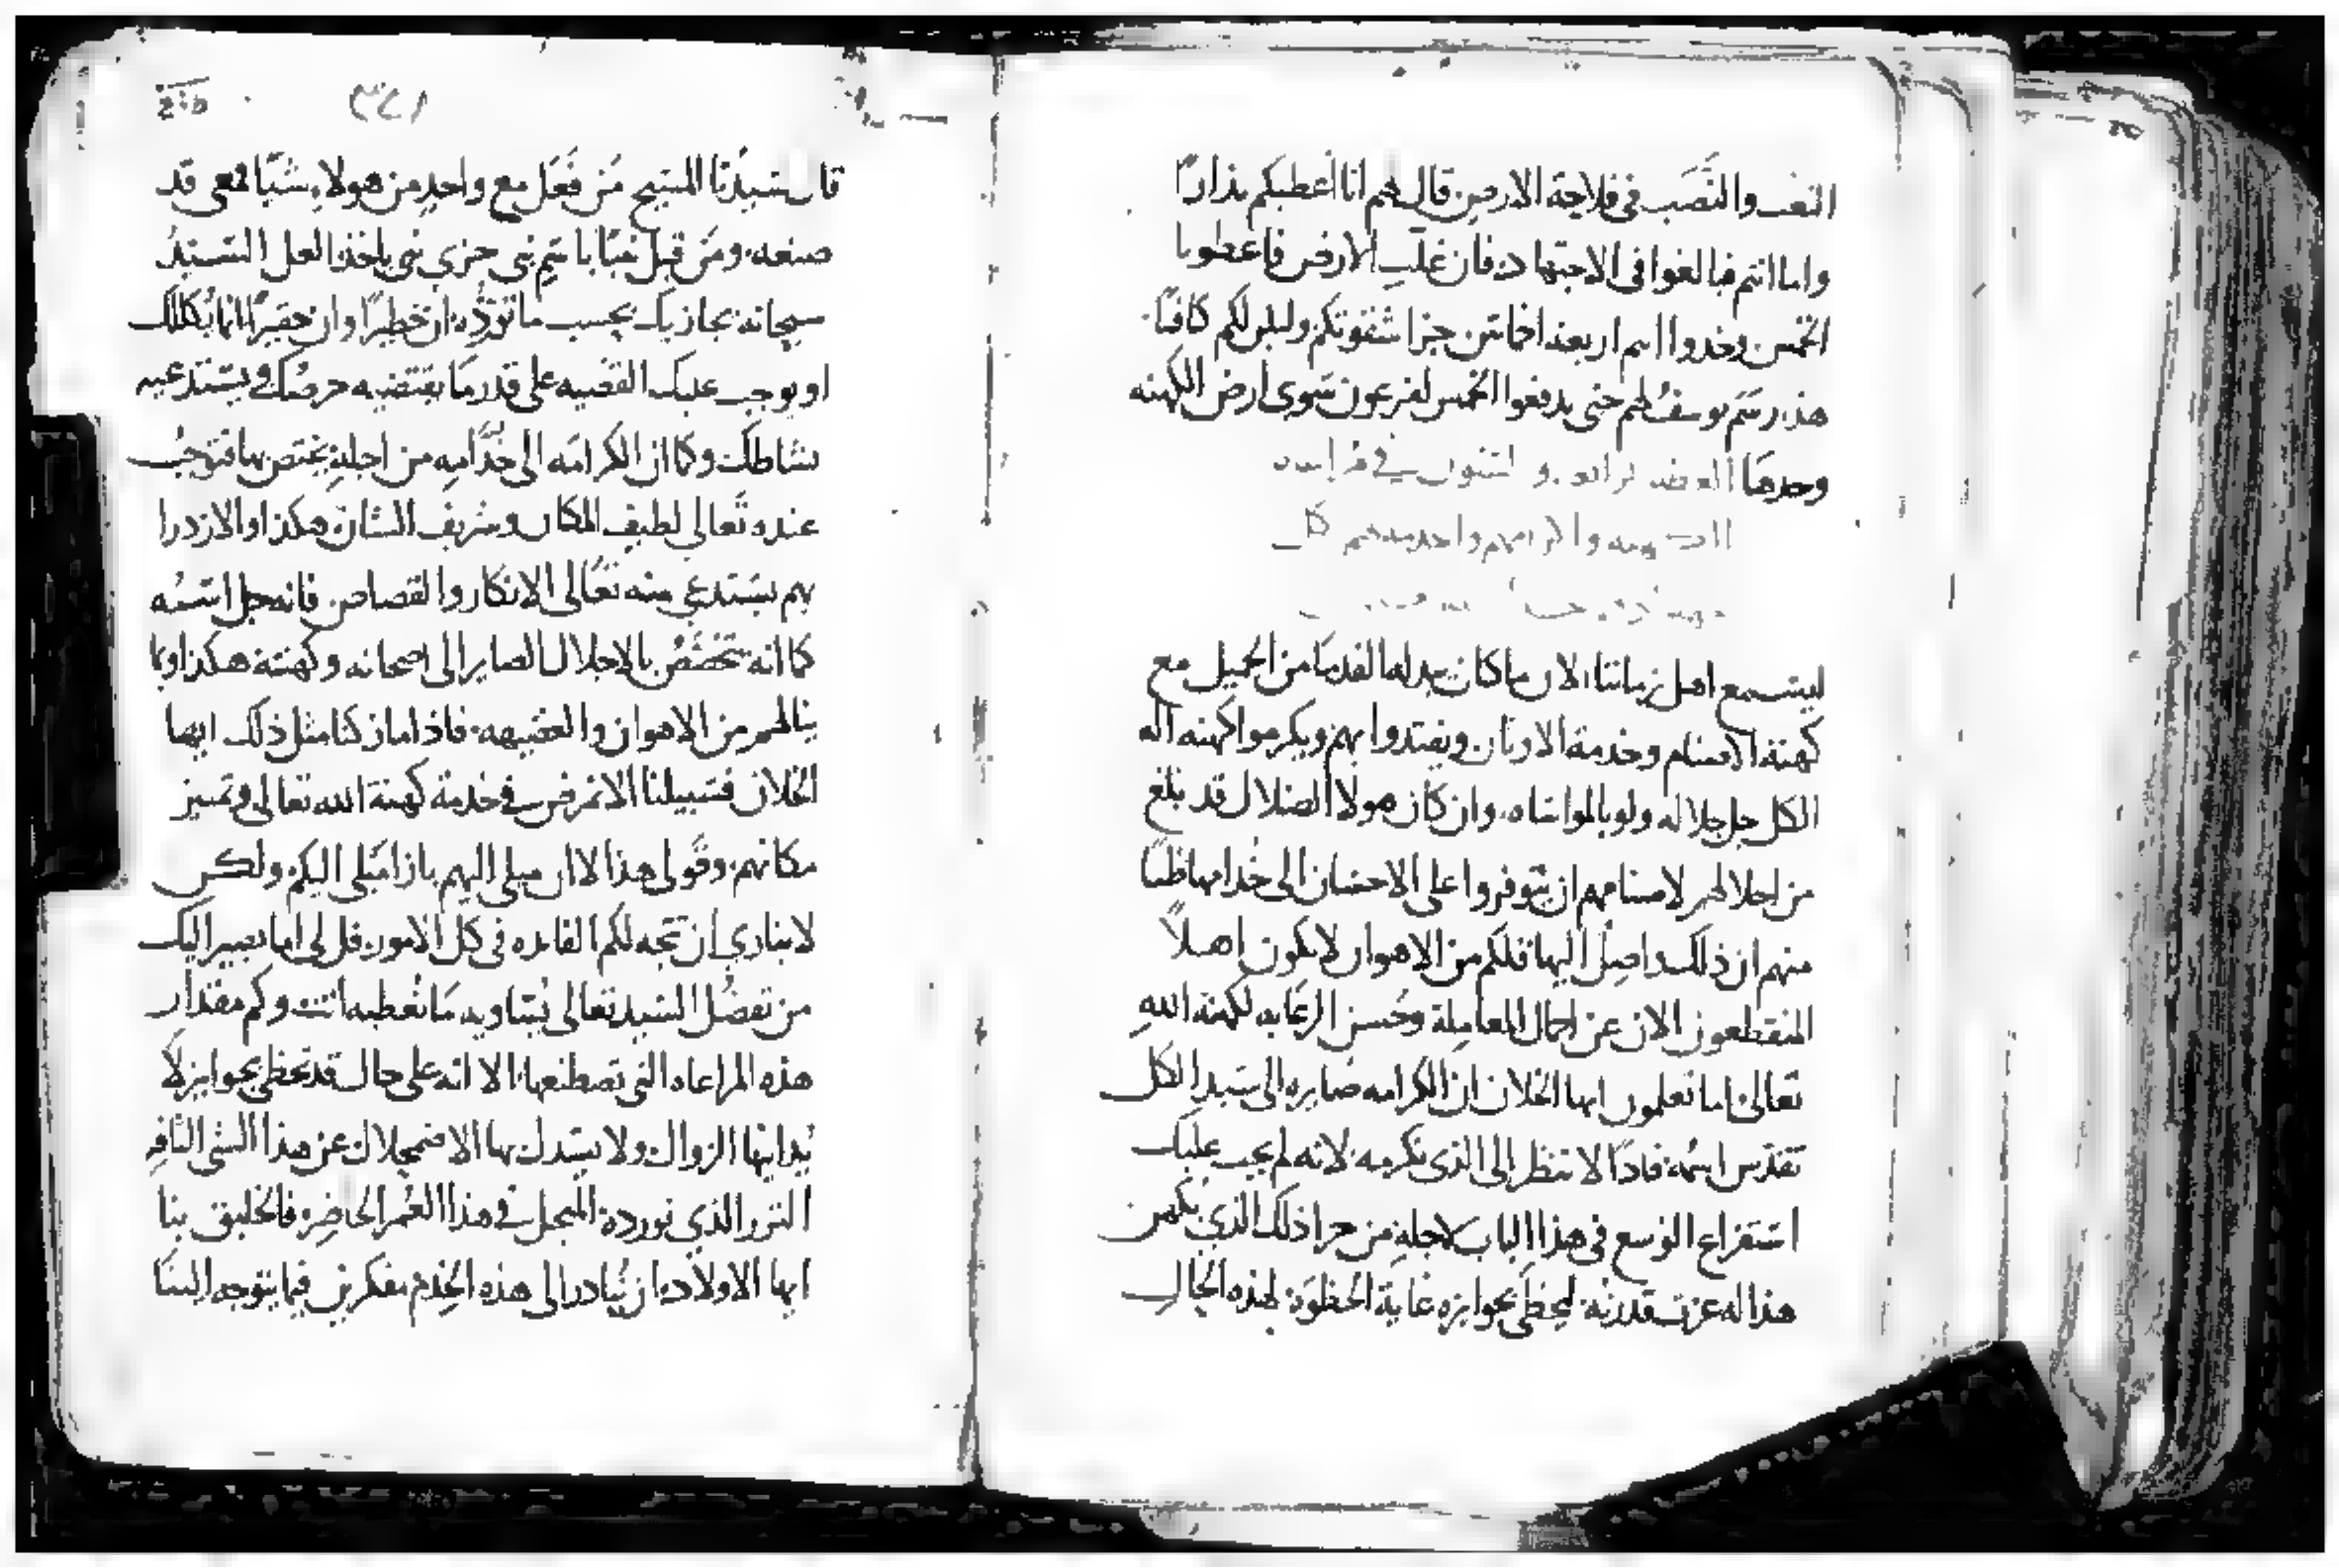 التعب والنَّصَب فى فلاحة الارض قال لهم انا اعطيكم بذارًا
واما انتم فبالغوا فى الاجتهاد، فان غلّت الارض فاعطونا
الخمس وخدوا انتم اربعة اخماس جزا شقوتكم وليكن لكم كافيًا
هذه رسَم يوسفُ لهم حتى يدفعوا الخمس لفرعون سَوى ارض الكهنه
وحدها العظه الرابعه والستون في
واكرامهم وخدمتهم كل
ليسمع اهل زماننا الان ما كان يبدله القدمَا من الجميل مع
كهنة الاصنام وخدمة الاوثان ويقتدوا بهم ويكرموا كهنه اله
الكل جل جلاله ولو بالمواساه، وان كان هولا الضلال قد بلغ
من اجلالهم لاصنامهم ان يتوفروا على الاحسان الى خُدامها ظنًا
منهم ان ذلك واصِل اليها فلكم من الاهوان لا يكون اهلاً
المنقطعون الان عن اجمال المعامِلة وحُسن الرعَايه لكهنة اللهِ
تعالى اما تعلمون ايها الخلان ان الكرامه صَايره الى سَيد الكل
تقدّس اسمُه فاذًا لا تنظر الى الذى تكرمه لانه لم يجب عليك
استفراع الوسع فى هذا الباب لاجلهِ من جرا ذلك الذي يكهن
هذا له عزت قدرته ليحظَى بجوايزه غاية الحظوَة لهذه الحَال
قال سَيدُنا المسَيح مَن فَعَل مع واحدٍ من هولاءِ شيًا فمعى قد
صنعه ومَن قبل نبيًا باسَمِ نبى جزي نبى ياخذ العل السَيدُ
سبحانه يجازيك بحسب ما تورّده ان خطيرًا وان حقيرًا انما يُكللك
او يوجب عليك القضيه على قدر مَا يقتضيه حرصُك ويسَتدعيه
نشاطك وكما ان الكرامَه الى خُدَّامِه من اجلهِ يختص بها فتوجب
عنده تَعالى لطيف المكان وشريف الشان هكذا والازدرا
بهم يسَتدعي منه تعَالى الانكار والقصاص فانه جل اسَمُه
كما انه يتخصَّصُ بالاجلال الصاير الى اصحابه وكهنته هكذا وبما
ينالهم من الاهوان والعضيهه فاذ اما ز كنا مثل ذلك ايها
الخلان فسَبيلنا الا نمرض في خدمة كهنة الله تعالى وتمييز
مكانهم وقَولى هذا لا ان ميلى اليهم بازا مَيلى اليكم ولكن
لايثاري ان تتجه لكم الفايده فى كل الامور قل لى اما يصير اليك
من تفضّل السَيد تعَالى يُسَاويه مَا تُعطيه انت وكم مقدار
هذه المراعاه التى تصطنعها الا انه على حال قد تحظى بجوايز لَا
يُدانيها الزوال ولا يسَتدل بها الاضمحلال عن هذا الشى التافِه
النزر الذي تورده المبجل في هذا العُمر الحاضِر فالخليق بنا
ايها الاولاد ان نُبادر الى هذه الخِدم مفكرين فيما يتوجه الينَا